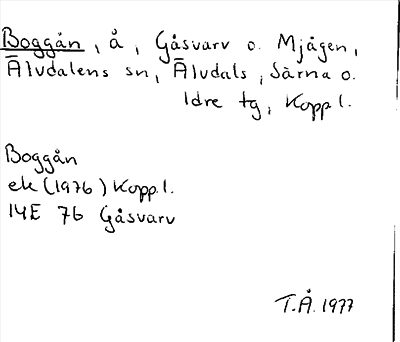 Boggån, å, Gåsvarv o. Mjågen,
Älvdalens sn, Älvdals, Särna o.
Idre tg, Kopp.l.
Boggån
ek (1976) Kopp.l.
14E 7b Gåsvarv
T.Å. 1977